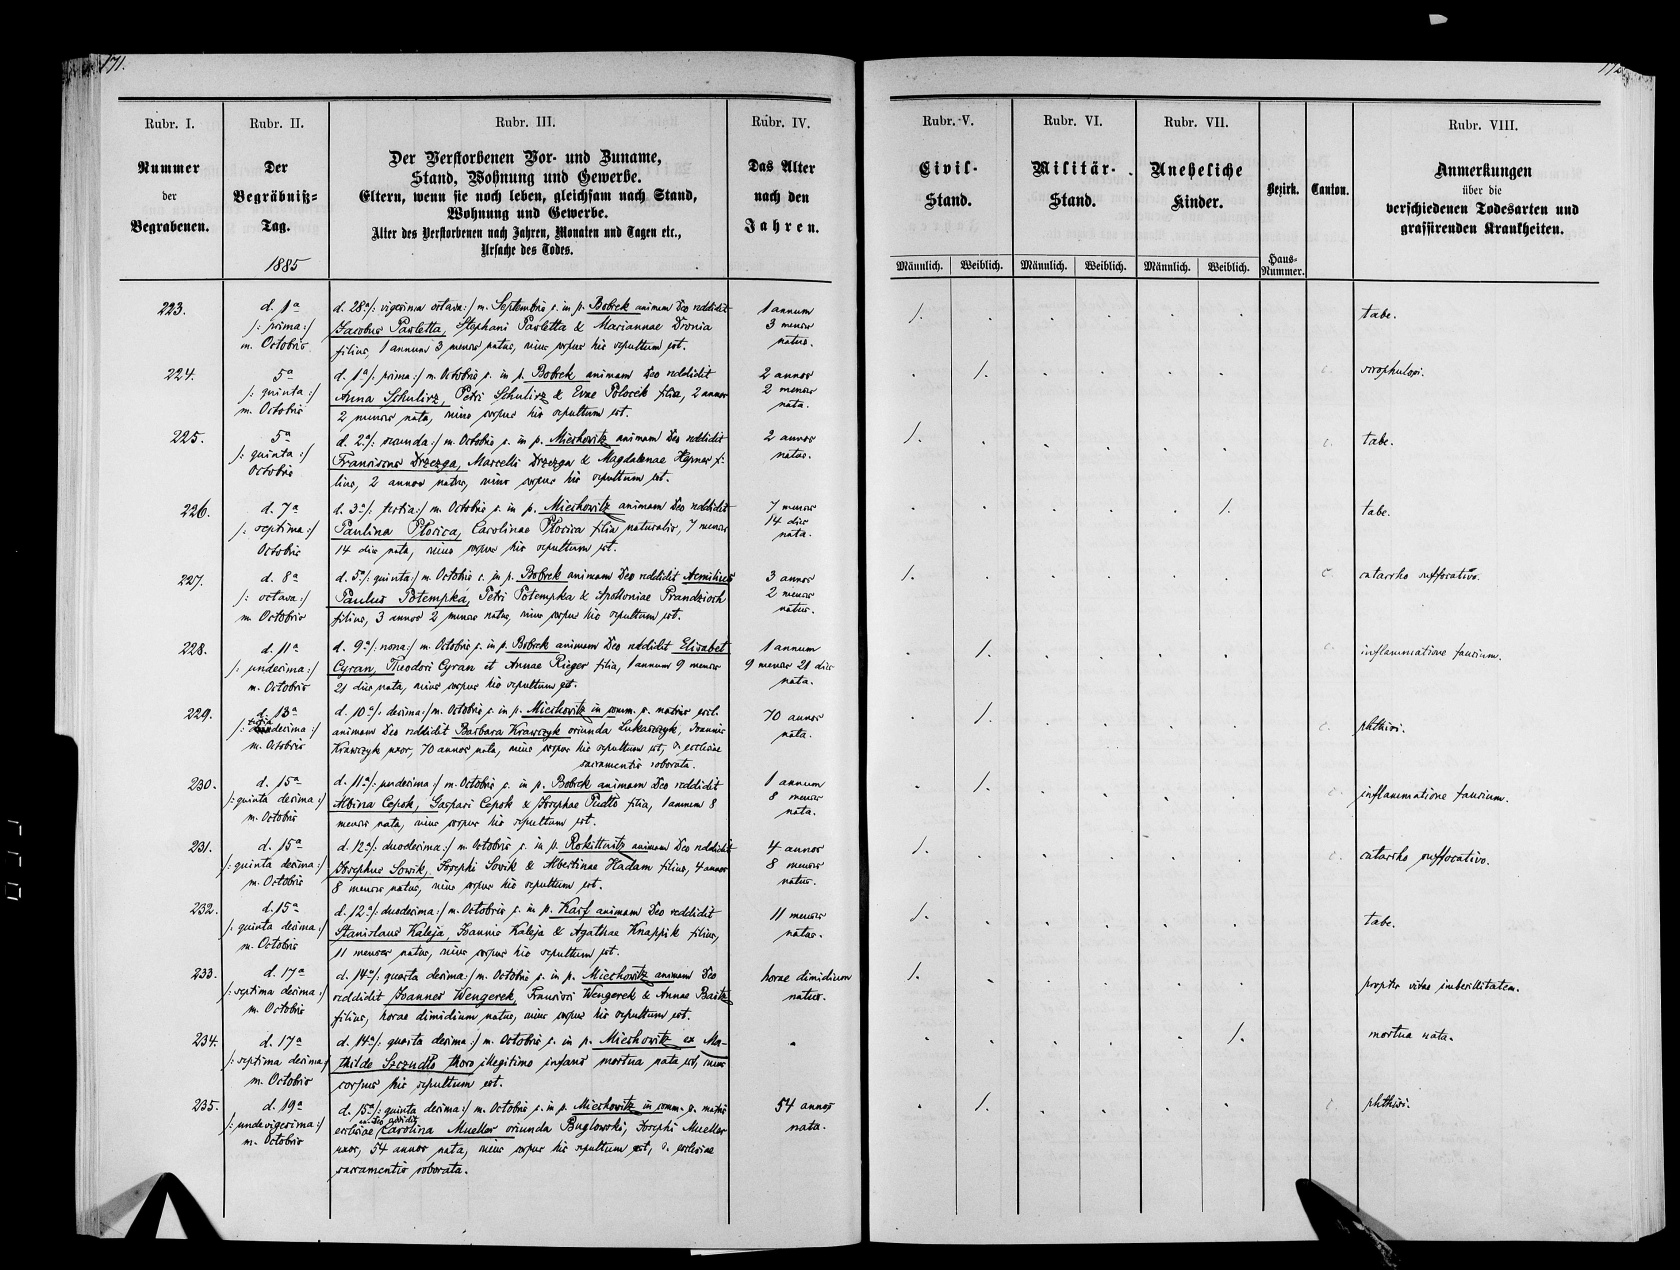 171.
Rubr. I.
Nummer
der
Begrabenen.
Rubr. II.
Der
Begräbniß=
Tag.
1885
Rubr. III.
Der Verstorbenen Vor- und Zuname,
Stand, Wohnung und Gewerbe.
Eltern, wenn sie noch leben, gleichsam nach Stand,
Wohnung und Gewerbe.
Alter des Verstorbenen nach Jahren, Monaten und Tagen etc.,
Ursache des Todes.
Rubr. IV.
Das Alter
nach den
Jahren.
Rubr. V.
Civil-
Stand.
Männlich. Weiblich.
Rubr. VI.
Militär-
Stand.
Männlich. Weiblich.
Rubr. VII.
Uneheliche
Kinder.
Männlich. Weiblich.
Bezirk.
Haus-
Nummer.
Canton.
Rubr. VIII.
Anmerkungen
über die
verschiedenen Todesarten und
grassirenden Krankheiten.
223.
d. 1ª
/: prima :/
m. Octobris
d. 28ª/: vigesima octava :/ m. Septembris c. in p. Bobrek animam Deo reddidit
Jacobus Pawletta, Stephani Pawletta & Mariannae Dronia
filius, 1 annum 3 menses natus, cuius corpus hic sepultum est.
1 annum
3 menses
natus.
1.
tabe.
224.
5ª
/: quinta :/
m. Octobris
d. 1ª/: prima :/ m. Octobris c. in p. Bobrek animam Deo reddidit
Anna Schulirz, Petri Schulirz & Evae Polocek filia, 2 annos
2 menses nata, cuius corpus hic sepultum est.
2 annos
2 menses
nata.
1.
c.
scrophulosi.
225.
5ª
/: quinta :/
Octobris
d. 2ª/: secunda :/ m. Octobris c. in p. Miechowitz animam Deo reddidit
Franciscus Drzezga, Marcelli Drzezga & Magdalenae Hepner fi-
lius, 2 annos natus, cuius corpus hic sepultum est.
2 annos
natus.
1.
c.
tabe.
226.
d. 7ª
/: septima :/
Octobris
d. 3ª/: tertia :/ m. Octobris c. in p. Miechowitz animam Deo reddidit
Paulina Plocica, Carolinae Plocica filia naturalis, 7 menses
14 dies nata, cuius corpus hic sepultum est.
7 menses
14 dies
nata.
1.
tabe.
227.
d. 8ª
/: octava :/
m. Octobris
d. 5ª/: quinta :/ m. Octobris c. in p. Bobrek animam Deo reddidit Aemilius
Paulus Potempka, Petri Potempka & Apolloniae Prandzioch
filius, 3 annos 2 menses natus, cuius corpus hic sepultum est.
3 annos
2 menses
natus.
1.
c.
catarrho suffocativo.
228.
d. 11ª
/: undecima :/
m. Octobris
d. 9ª/: nona :/ m. Octobris c. in p. Bobrek animam Deo reddidit Elisabet
Cyran, Theodori Cyran et Annae Rieger filia, 1 annum 9 menses
21 dies nata, cuius corpus hic sepultum est.
1 annum
9 menses 21 dies
nata.
1.
c.
inflammatione faucium.
229.
d. 13ª
tertia
/: decima :/
m. Octobris
d. 10ª/: decima :/ m. Octobris c. in p. Miechowitz in comm. s. matris eccl.
animam Deo reddidit Barbara Krawczyk oriunda Lukaszczyk, Joannis
Krawczyk uxor, 70 annos nata, cuius corpus hic sepultum est, s. ecclesiae
sacramentis roborata.
70 annos
nata.
1.
c.
phthisi.
230.
d. 15ª
/: quinta decima :/
m. Octobris
d. 11ª/: undecima :/ m. Octobris c. in p. Bobrek animam Deo reddidit
Albina Cepok, Gaspari Cepok & Josephae Pudlo filia, 1 annum 8
menses nata, cuius corpus hic sepultum est.
1 annum
8 menses
nata.
1.
c.
inflammatione faucium.
231.
d. 15ª
/: quinta decima :/
m. Octobris
d. 12ª/: duodecima :/ m. Octobris c. in p. Rokittnitz animam Deo reddidit
Josephus Sowik, Josephi Sowik & Albertinae Hadam filius, 4 annos
8 menses natus, cuius corpus hic sepultum est.
4 annos
8 menses
natus.
1.
c.
catarrho suffocativo.
232.
d. 15ª
/: quinta decima :/
m. Octobris
d. 12ª/: duodecima :/ m. Octobris c. in p. Karf animam Deo reddidit
Stanislaus Kaleja, Joannis Kaleja & Agathae Knappik filius,
11 menses natus, cuius corpus hic sepultum est.
11 menses
natus.
1.
tabe.
233.
d. 17ª
/: septima decima :/
m. Octobris
d. 14ª/: quarta decima :/ m. Octobris c. in p. Miechowitz animam Deo
reddidit Joannes Wengerek, Francisci Wengerek & Annae Baitz
filius, horae dimidium natus, cuius corpus hic sepultum est.
horae dimidium
natus.
1.
propter vitae imbecillitatem.
234.
d. 17ª
/: septima decima :/
m. Octobris
d. 14ª/: quarta decima :/ m. Octobris c. in p. Miechowitz ex Ma-
thilde Szczudlo thoro illegitimo infans mortua nata est, cuius
corpus hic sepultum est.
1.
mortua nata.
235.
d. 19ª
/: undevigesima :/
m. Octobris
d. 15ª/: quinta decima :/ m. Octobris c. in p. Miechowitz in comm. s. matris
an. Deo reddidit
ecclesiae Carolina Mueller oriunda Buglowski, Josephi Mueller
uxor, 54 annos nata, cuius corpus hic sepultum est, s. ecclesiae
sacramentis roborata.
54 annos
nata.
1.
c.
phthisi.